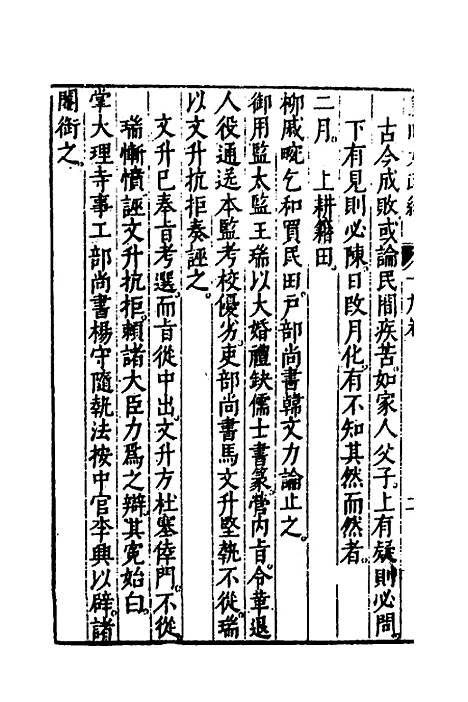 古今成敗或論民間疾苦。如家人父子。上有疑則必問。
下有見則必陳。日改月化。有不知其然而然者。
二月。上耕籍田。
柳戚畹乞和買民田。戶部尚書韓文力論止之。
御用監太監王瑞以大婚禮缺儒士書篆。營內旨。令革退
人役通送本監考校優劣。吏部尚書馬文升堅執不從。瑞
以文升抗拒奏誣之。
文升已奉旨考選。而旨從中出。文升方杜塞倖門。不從。
瑞慚憤誣文升抗拒。賴諸大臣力爲之辯。其寃始白。
掌大理寺事工部尚書楊守隨執法按中官李興以辟。諸
閹銜之。